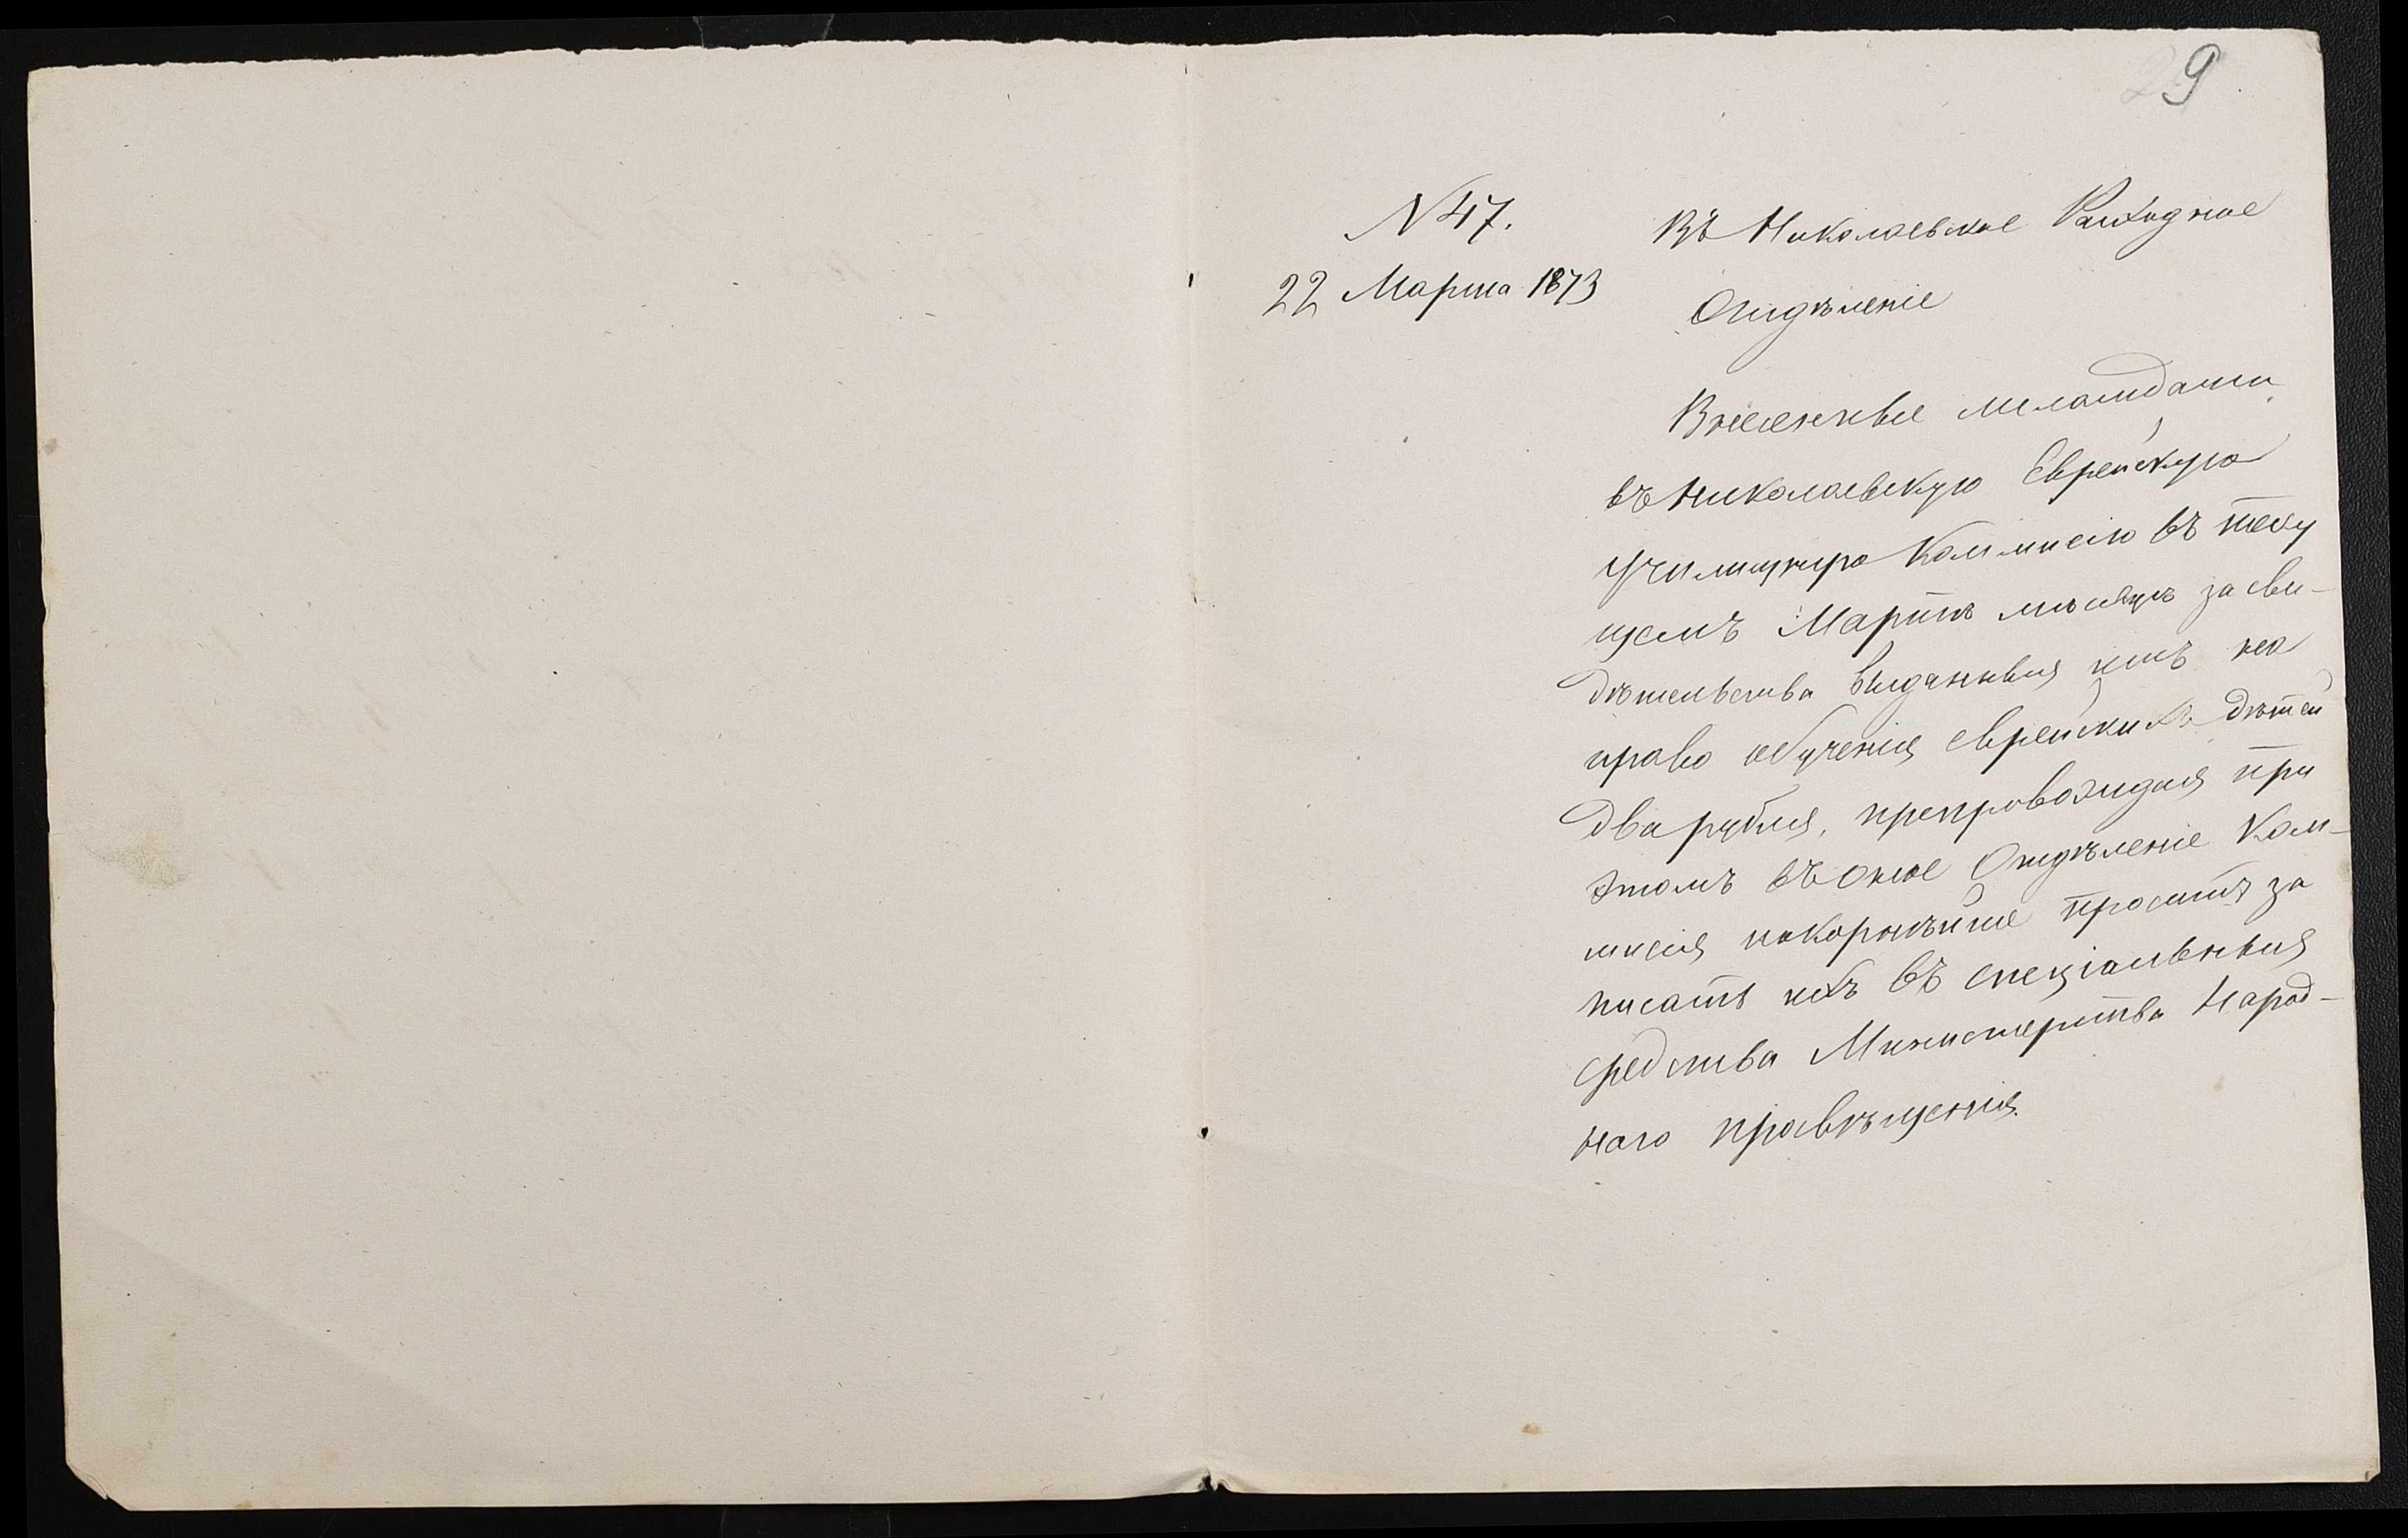 9
N 47.
22 Марта 1873
Въ Николаевское Расходное
Отдѣленіе
Внесенные меламдами
въ Николаевскую Еврейскую
училищную Коммисію въ теку
щемъ Мартѣ мѣсяцѣ за сви-
дѣтельства выданныя имъ на
право обученія еврейскихъ дѣтей
два рубля, препровождая при
этомъ въ оное Отдѣленіе Ком-
мисія покорнѣйше проситъ за
писать ихъ въ спеціальныя
средства Министерства Народ-
наго просвѣщенія.